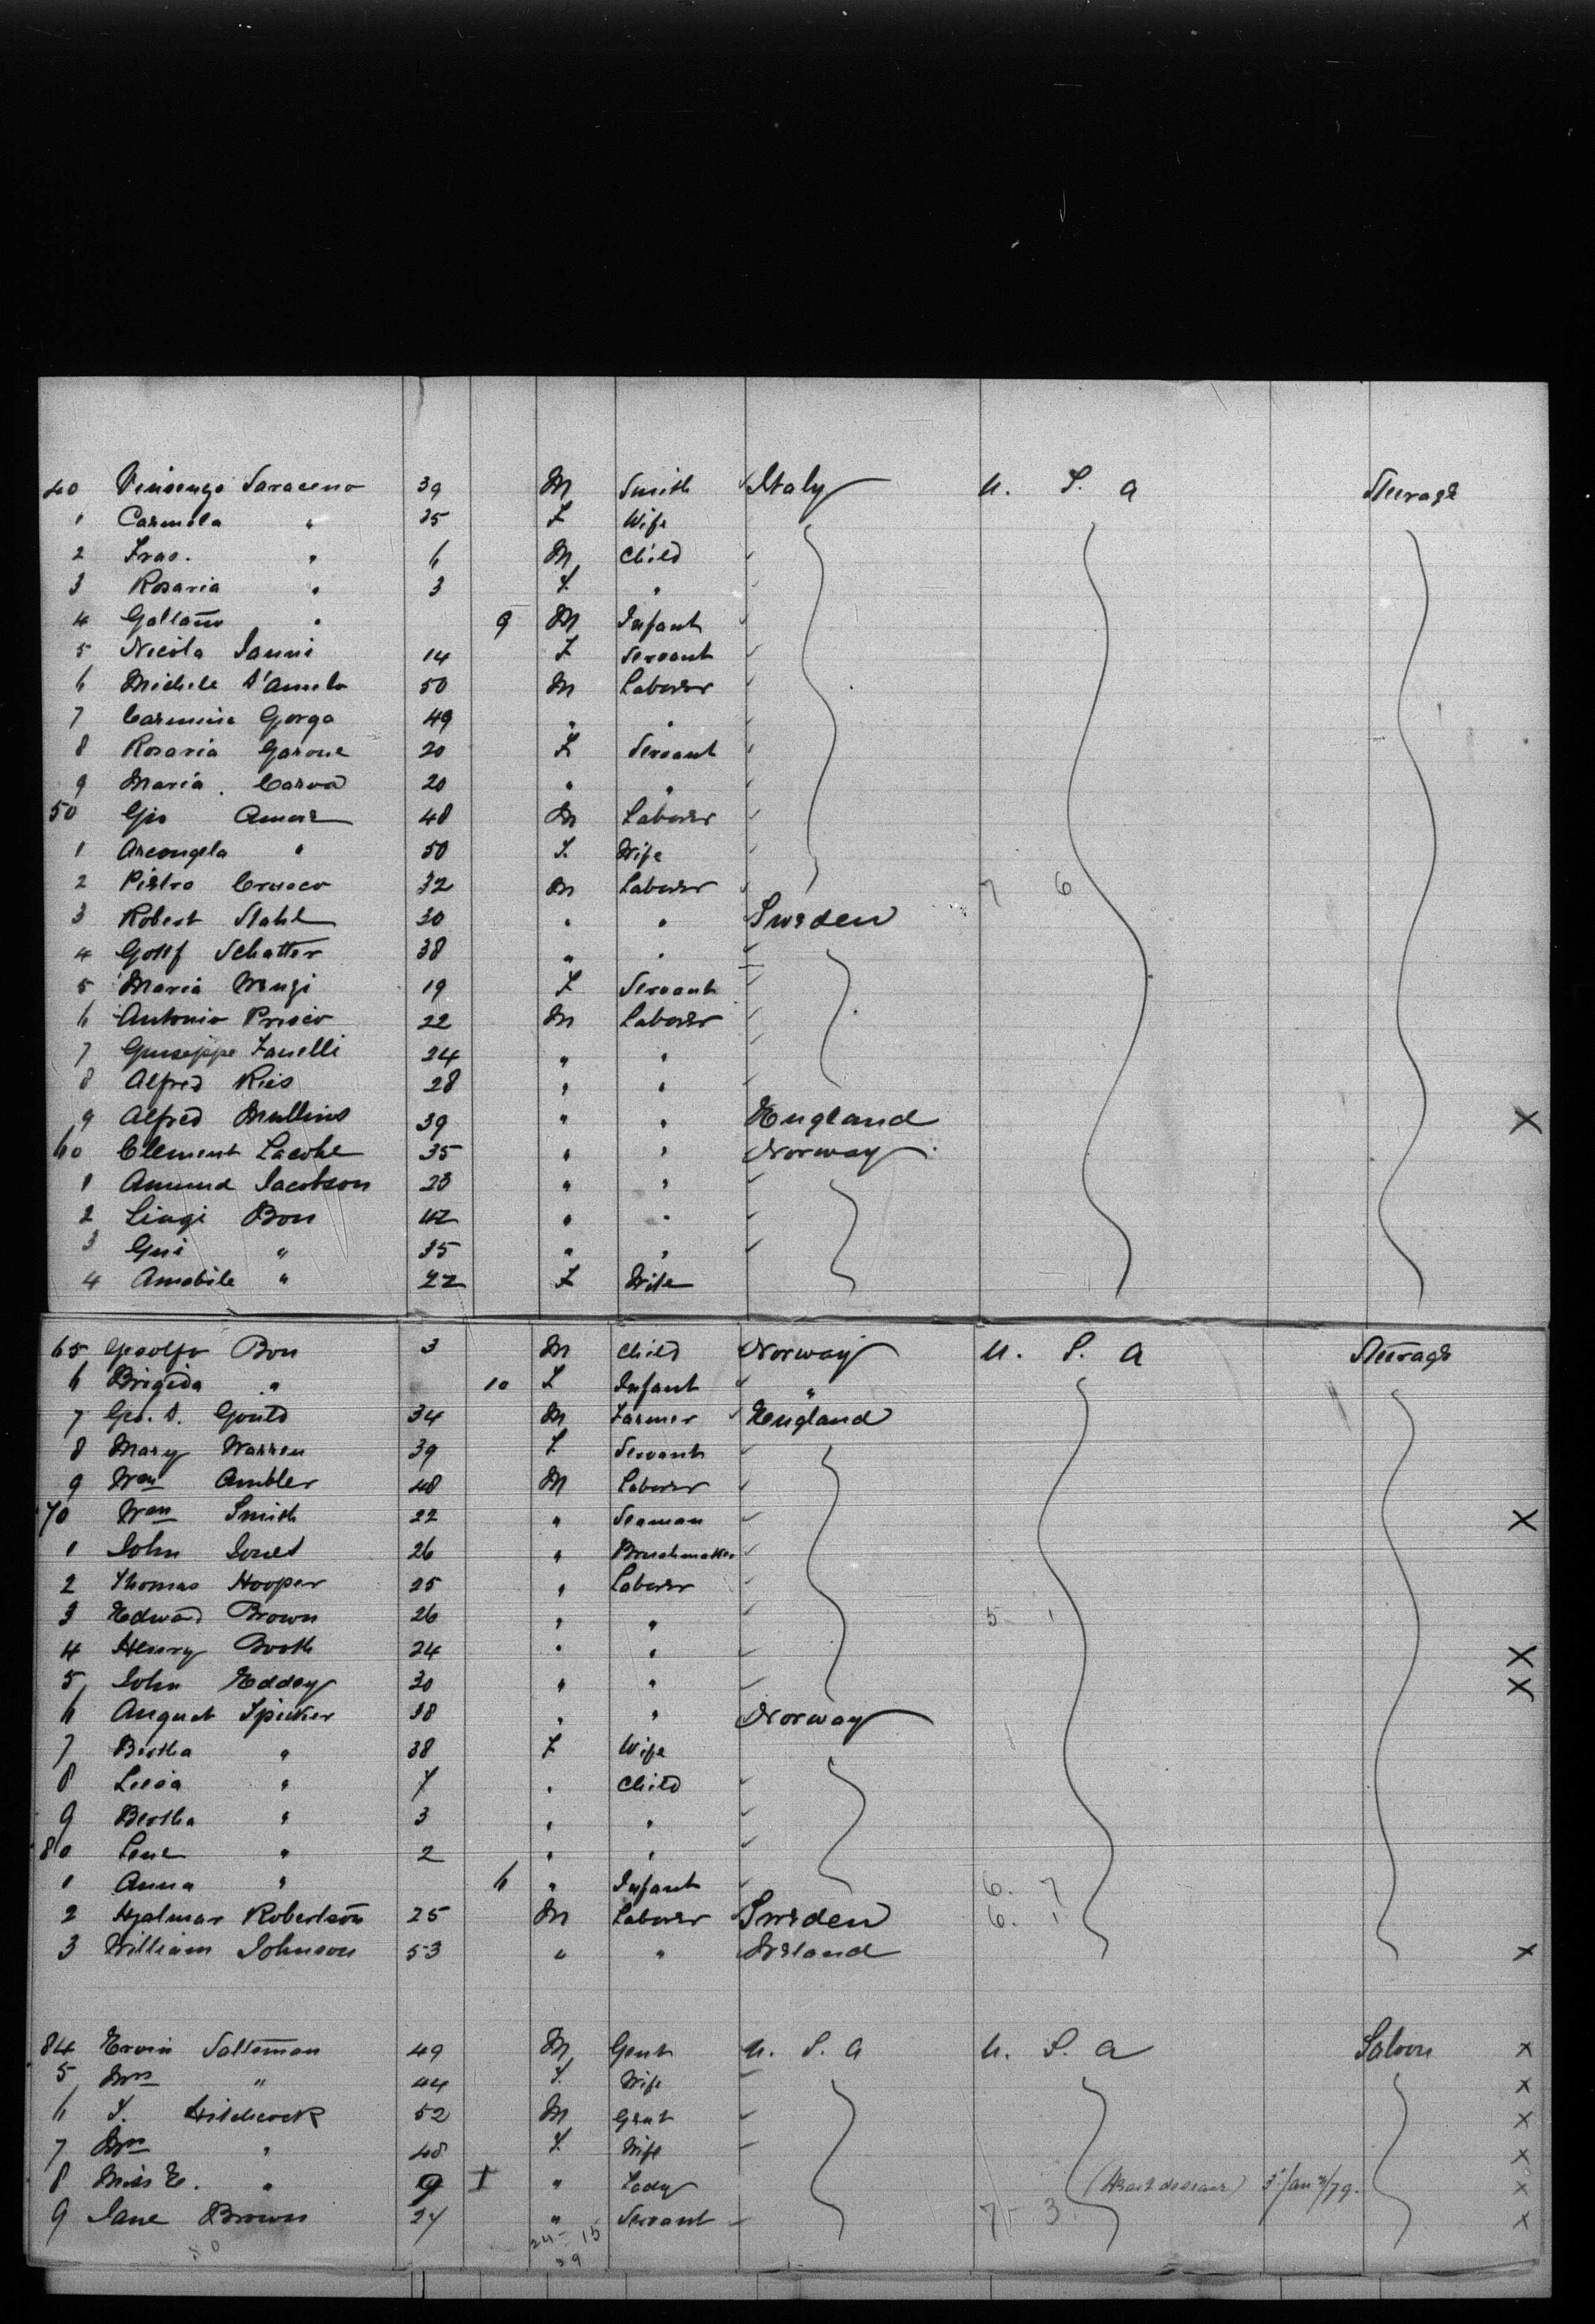 40 Vincenzo Saraceno 39 M Smith Italy U. S. A Steerage
1 Carmela " 35 F Wife
2 Frac. " 6 M Child
3 Rosaria " 3 F. "
4 Gattano " 9 M Infant
5 Nicola Ianni 14 F Servant
6 Michele D'Amelo 50 M Laborer
7 Carmine Gorga 49 " "
8 Rosaria Garone 20 F Servant
9 Maria 20 " "
50 Gio 48 M Laborer
1 Arcongela " 50 F. Wife
2 Pietro 32 M Laborer 7 6
3 Robert Stahl 30 " " Sweden
4 Gottf Schatter 38 " "
5 Maria 19 F Servant
6 Antonio Prisco 22 M Laborer
7 Guiseppe Zanelli 24 " "
8 Alfred Ries 28 " "
9 Alfred Mullins 39 " " England X
60 Clement 35 " " Norway
1 Amund Jacobson 23 " "
2 Liugi Bon 42 " "
3 Gui " 35 " "
4 Amabile " 22 F Wife
65 Bon 3 M Child Norway U. S. A Steerage
6 Brigida " 10 F Infant "
7 Geo. S. Gould 34 M Farmer England
8 Mary Warren 39 F. Servant
9 Wm Ambler 48 M Laborer
70 Wm Smith 22 " Seaman X
1 John Jones 26 " Brushmaker
2 Thomas Hooper 25 " Laborer
3 Edward Brown 26 " " 5 1
4 Henry Booth 24 " " X
5 John Eddey 30 " " X
6 August Spicker 38 " " Norway
7 Bertha " 38 F Wife
8 Luisa " 7 " Child
9 Bertha " 3 " "
80 Lene " 2 " "
1 Anna " 6 " Infant 6. 7
2 Hjalmar Robertson 25 M Laborer Sweden 6. 1
3 William Johnson 53 " " Ireland X
84 Ervin Saltsman 49 M Gent U. S. A U. S. A Saloon X
5 Mrs " 44 F. Wife X
6 F. Hitchcock 52 M Gent X
7 Mrs " 48 F. Wife X
8 Miss E. " 9 " Lady (Heart disease) X
9 Jane Brown 24 " Servant 7 3 X
24 15
39